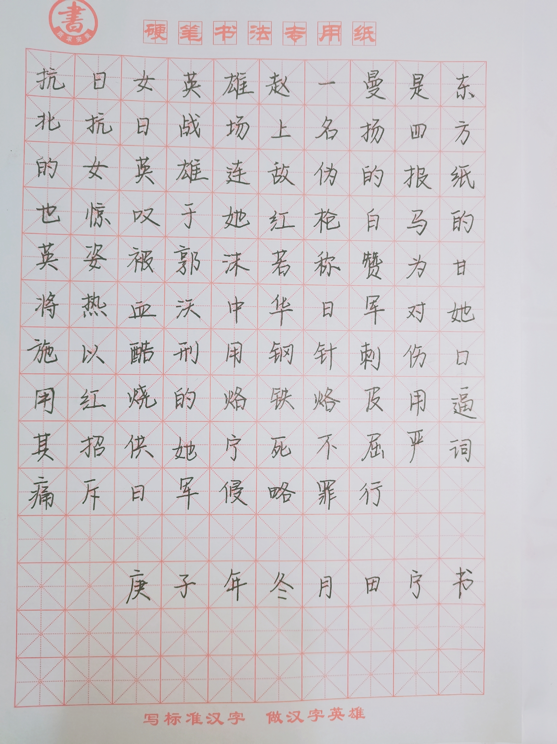 書
硬笔书法专用纸
抗日女英雄赵一曼是东
北抗日战场上名扬四方
的女英雄连敌伪的报纸
也惊叹于她红枪白马的
英姿被郭沫若称赞为甘
将热血沃中华日军对她
施以酷刑用钢针刺伤口
用红烧的烙铁烙及用逼
其招供她宁死不屈严词
痛斥日军侵略罪行
庚子年冬月田宁书
写标准汉字 做汉字英雄